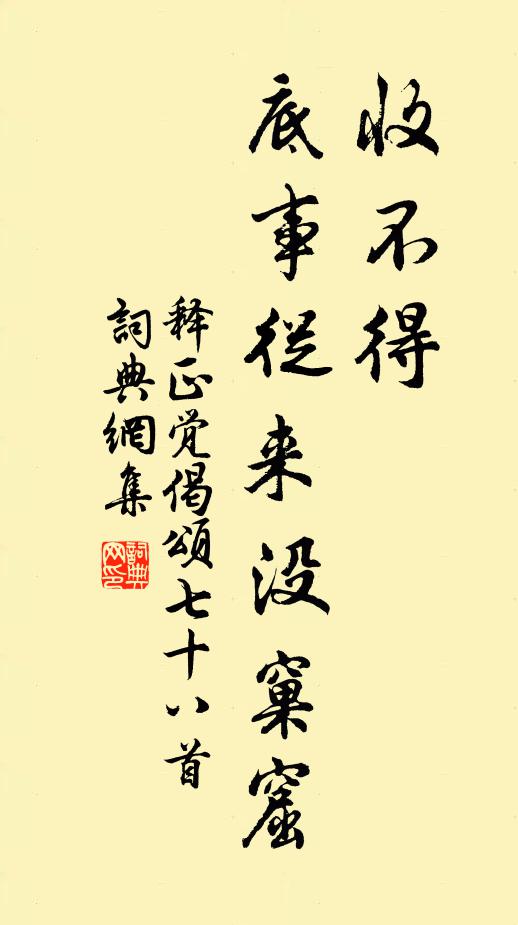 收不得
底事從来没窠窟
释正觉偈頌七十八首
詞典網集
詞典网印